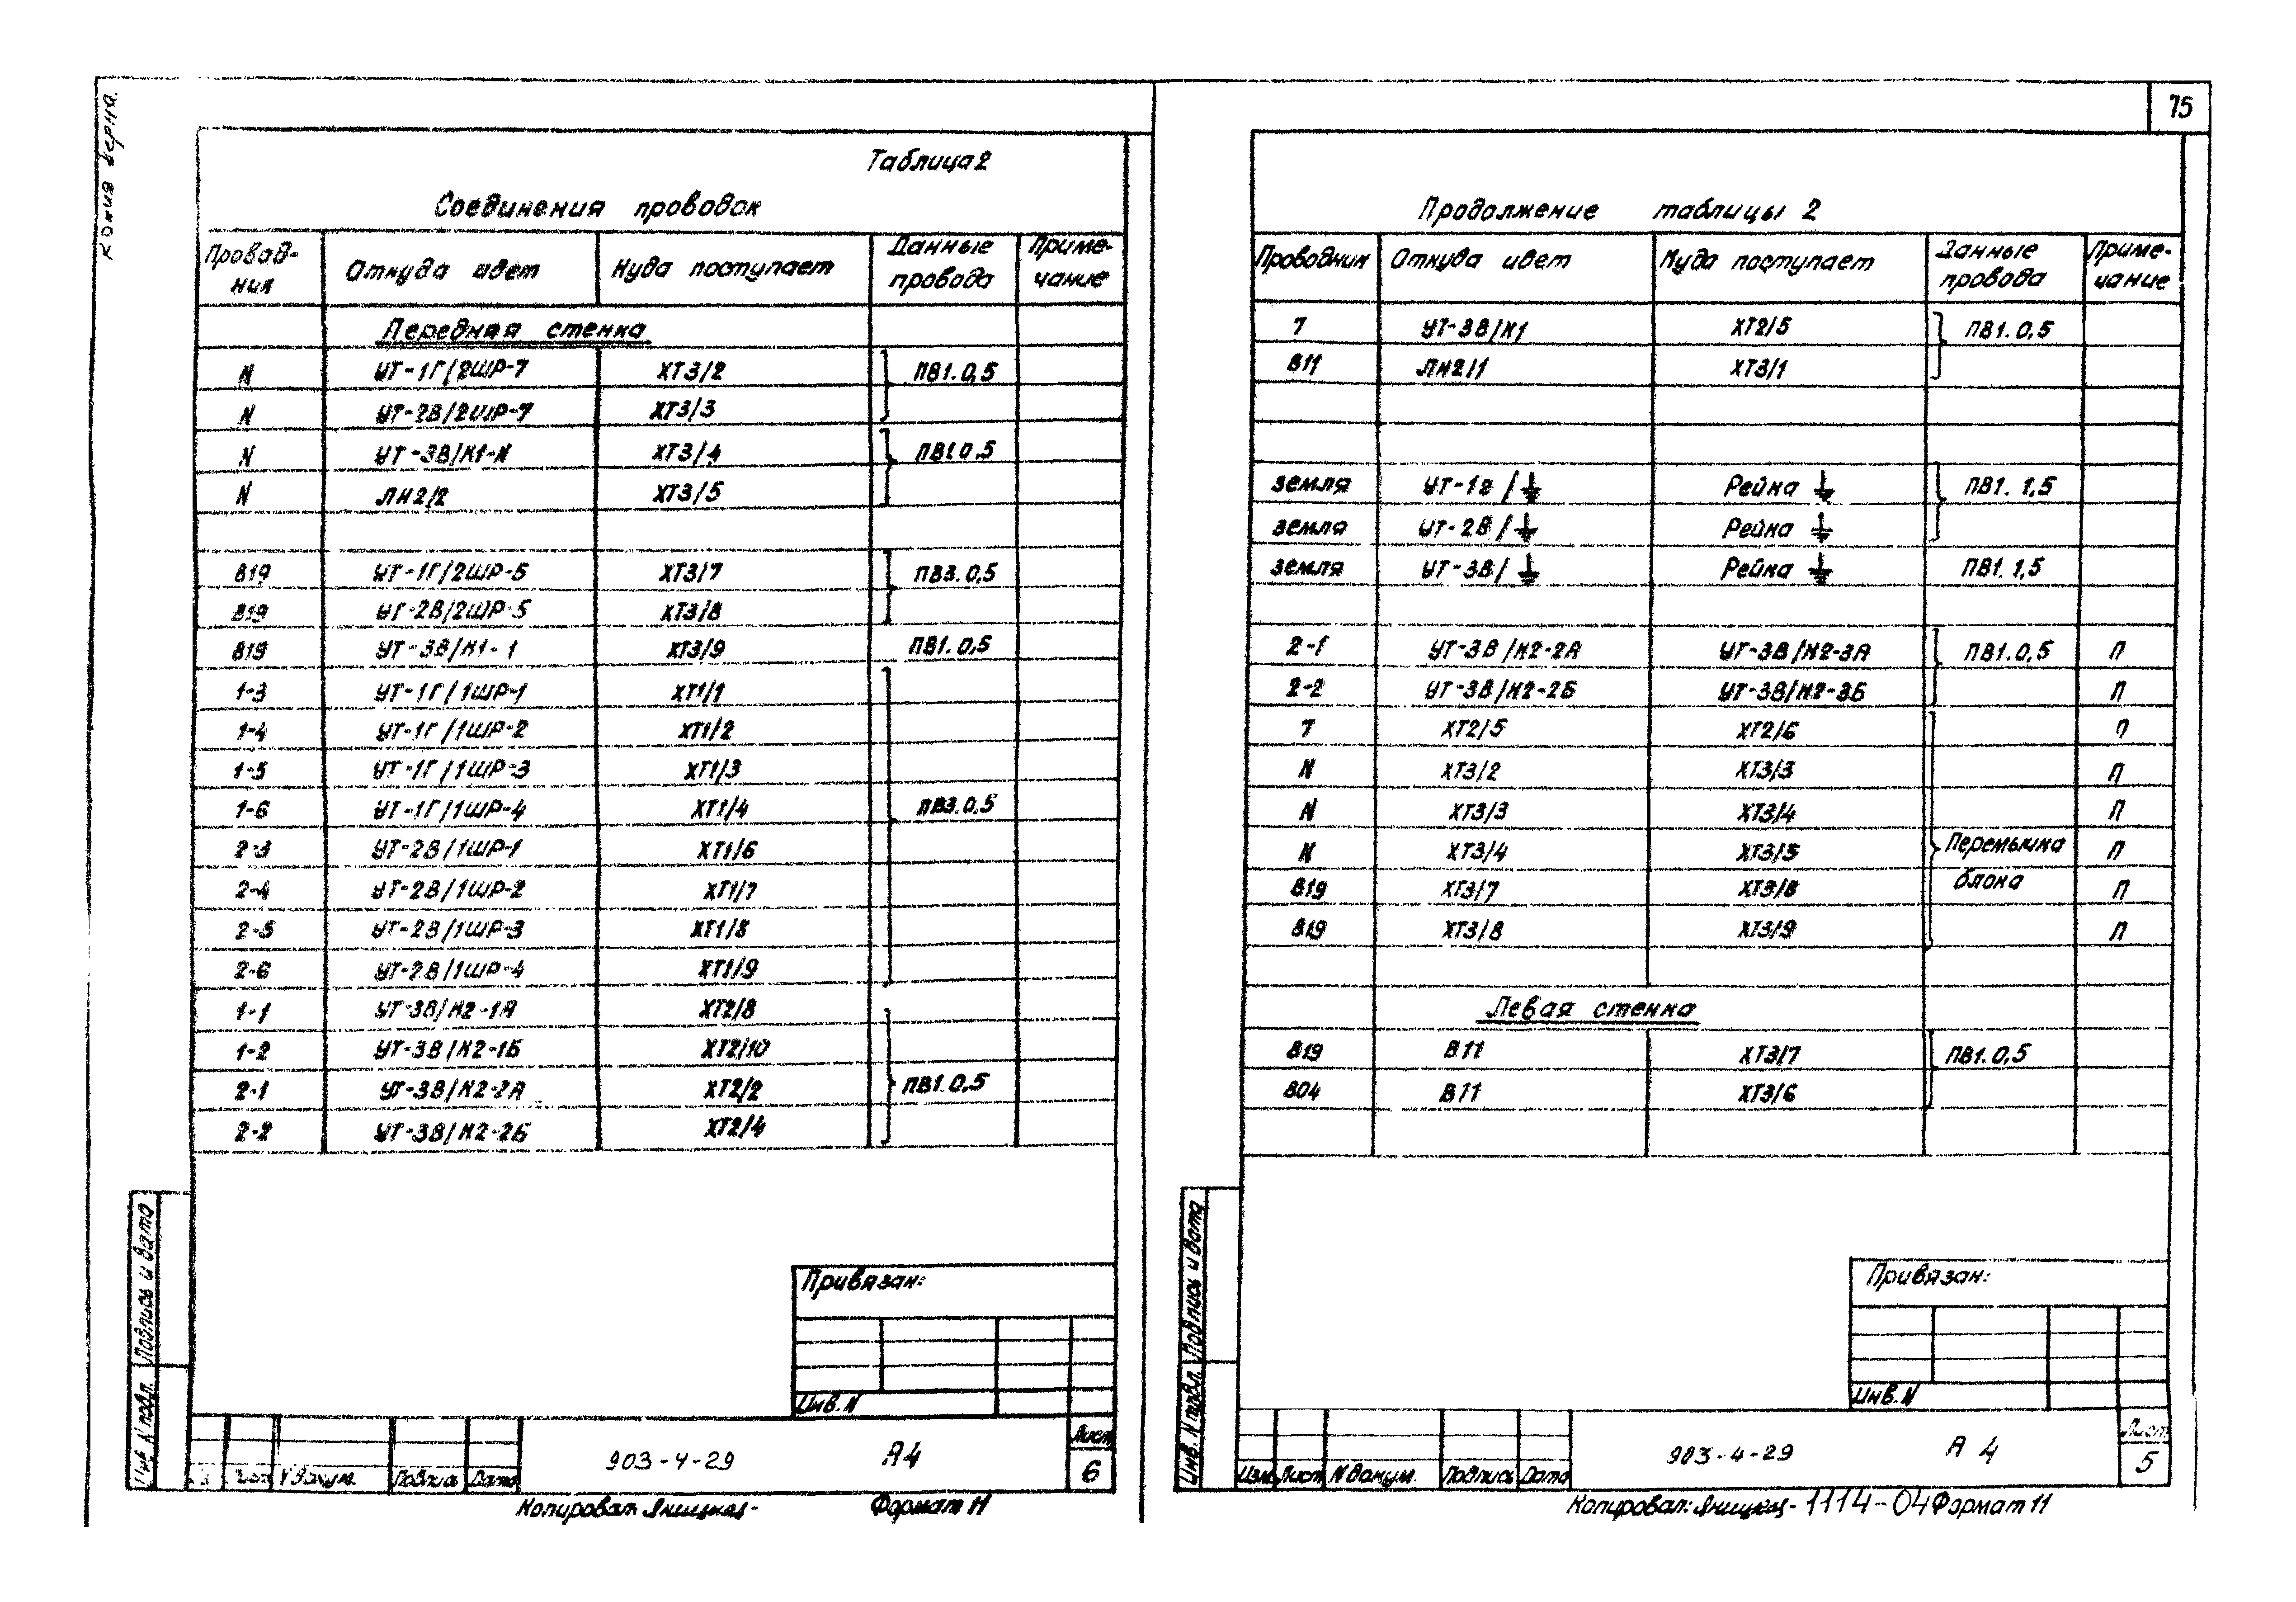 копия верна.
Таблица 2
Соединения проводок
Провод-ник Откуда идет Куда поступает Данные провода Приме-чание
Передняя стенка
N УТ-1Г/2ШР-7 ХТ3/2 ПВ1.0,5
N УТ-2В/2ШР-7 ХТ3/3
N УТ-3В/К1-N ХТ3/4 ПВ1.0,5
N ЛН2/2 ХТ3/5
819 УТ-1Г/2ШР-5 ХТ3/7 ПВ3.0,5
819 УТ-2В/2ШР-5 ХТ3/8
819 УТ-3В/К1-1 ХТ3/9 ПВ1.0,5
1-3 УТ-1Г/1ШР-1 ХТ1/1
1-4 УТ-1Г/1ШР-2 ХТ1/2
1-5 УТ-1Г/1ШР-3 ХТ1/3
1-6 УТ-1Г/1ШР-4 ХТ1/4 ПВ3.0,5
2-3 УТ-2В/1ШР-1 ХТ1/6
2-4 УТ-2В/1ШР-2 ХТ1/7
2-5 УТ-2В/1ШР-3 ХТ1/8
2-6 УТ-2В/1ШР-4 ХТ1/9
1-1 УТ-3В/К2-1А ХТ2/8
1-2 УТ-3В/К2-1Б ХТ2/10
2-1 УТ-3В/К2-2А ХТ2/2 ПВ1.0,5
2-2 УТ-3В/К2-2Б ХТ2/4
Привязан:
Инв. N
Лист N докум. Подпись Дата
903-4-29 А4
Лист
6
Копировал: Яницкая- Формат 11
Инв. N подл. Подпись и дата
75
Продолжение таблицы 2
Проводник Откуда идет Куда поступает Данные провода Приме-чание
7 УТ-3В/К1 ХТ2/5 ПВ1.0,5
811 ЛН2/1 ХТ3/1
земля УТ-1г/⏚ Рейка ⏚ ПВ1. 1,5
земля УТ-2В/⏚ Рейка ⏚
земля УТ-3В/⏚ Рейка ⏚ ПВ1. 1,5
2-1 УТ-3В/К2-2А УТ-3В/К2-3А ПВ1.0,5 П
2-2 УТ-3В/К2-2Б УТ-3В/К2-3Б П
7 ХТ2/5 ХТ2/6 П
N ХТ3/2 ХТ3/3 П
N ХТ3/3 ХТ3/4 П
N ХТ3/4 ХТ3/5 Перемычка П
819 ХТ3/7 ХТ3/8 блока П
819 ХТ3/8 ХТ3/9 П
Левая стенка
819 В11 ХТ3/7 ПВ1.0,5
804 В11 ХТ3/6
Привязан:
Инв. N
Изм Лист N докум. Подпись Дата
903-4-29 А 4
Лист
5
Копировал: Яницкая- 1114-04 Формат 11
Инв. N подл. Подпись и дата